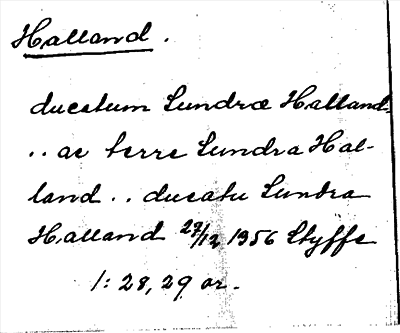 Halland.
ducatum Sundræ Halland.
.. ac terre Sundra Hal-
land .. ducatu Sundra
Halland 27/12 1356 Styffe
1: 28, 29 or.